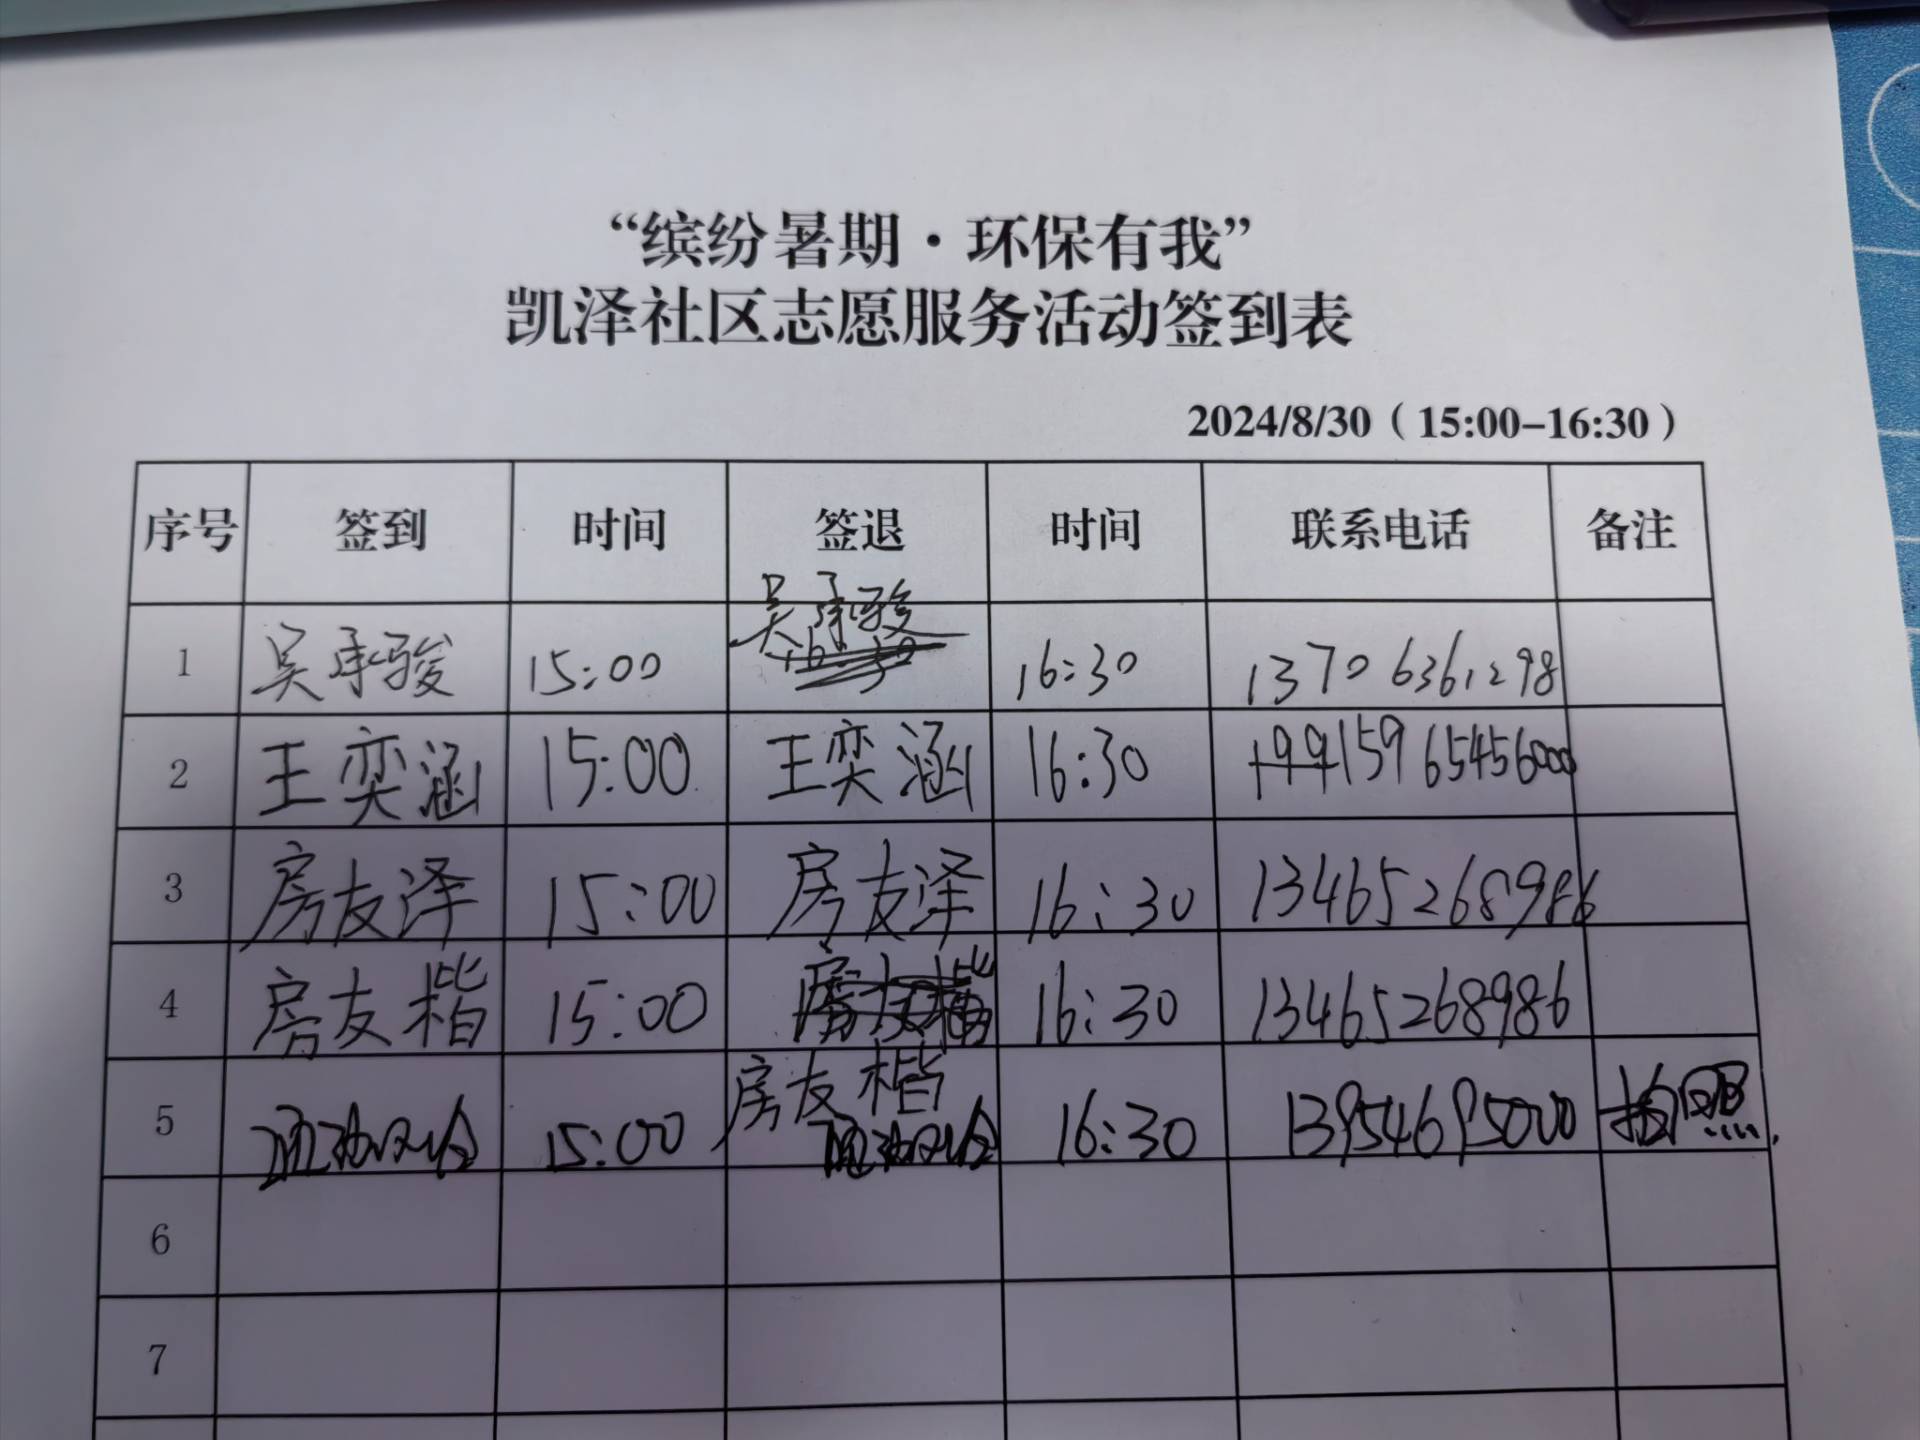 “缤纷暑期·环保有我”
凯泽社区志愿服务活动签到表
2024/8/30（15:00-16:30）
序号 签到 时间 签退 时间 联系电话 备注
1 吴承骏 15:00 吴承骏 16:30 13706361298
2 王奕涵 15:00 王奕涵 16:30 15965456000
3 房友泽 15:00 房友泽 16:30 13465268986
4 房友楷 15:00 房友楷 16:30 13465268986
5 15:00 16:30 13954695000 拍照
6
7